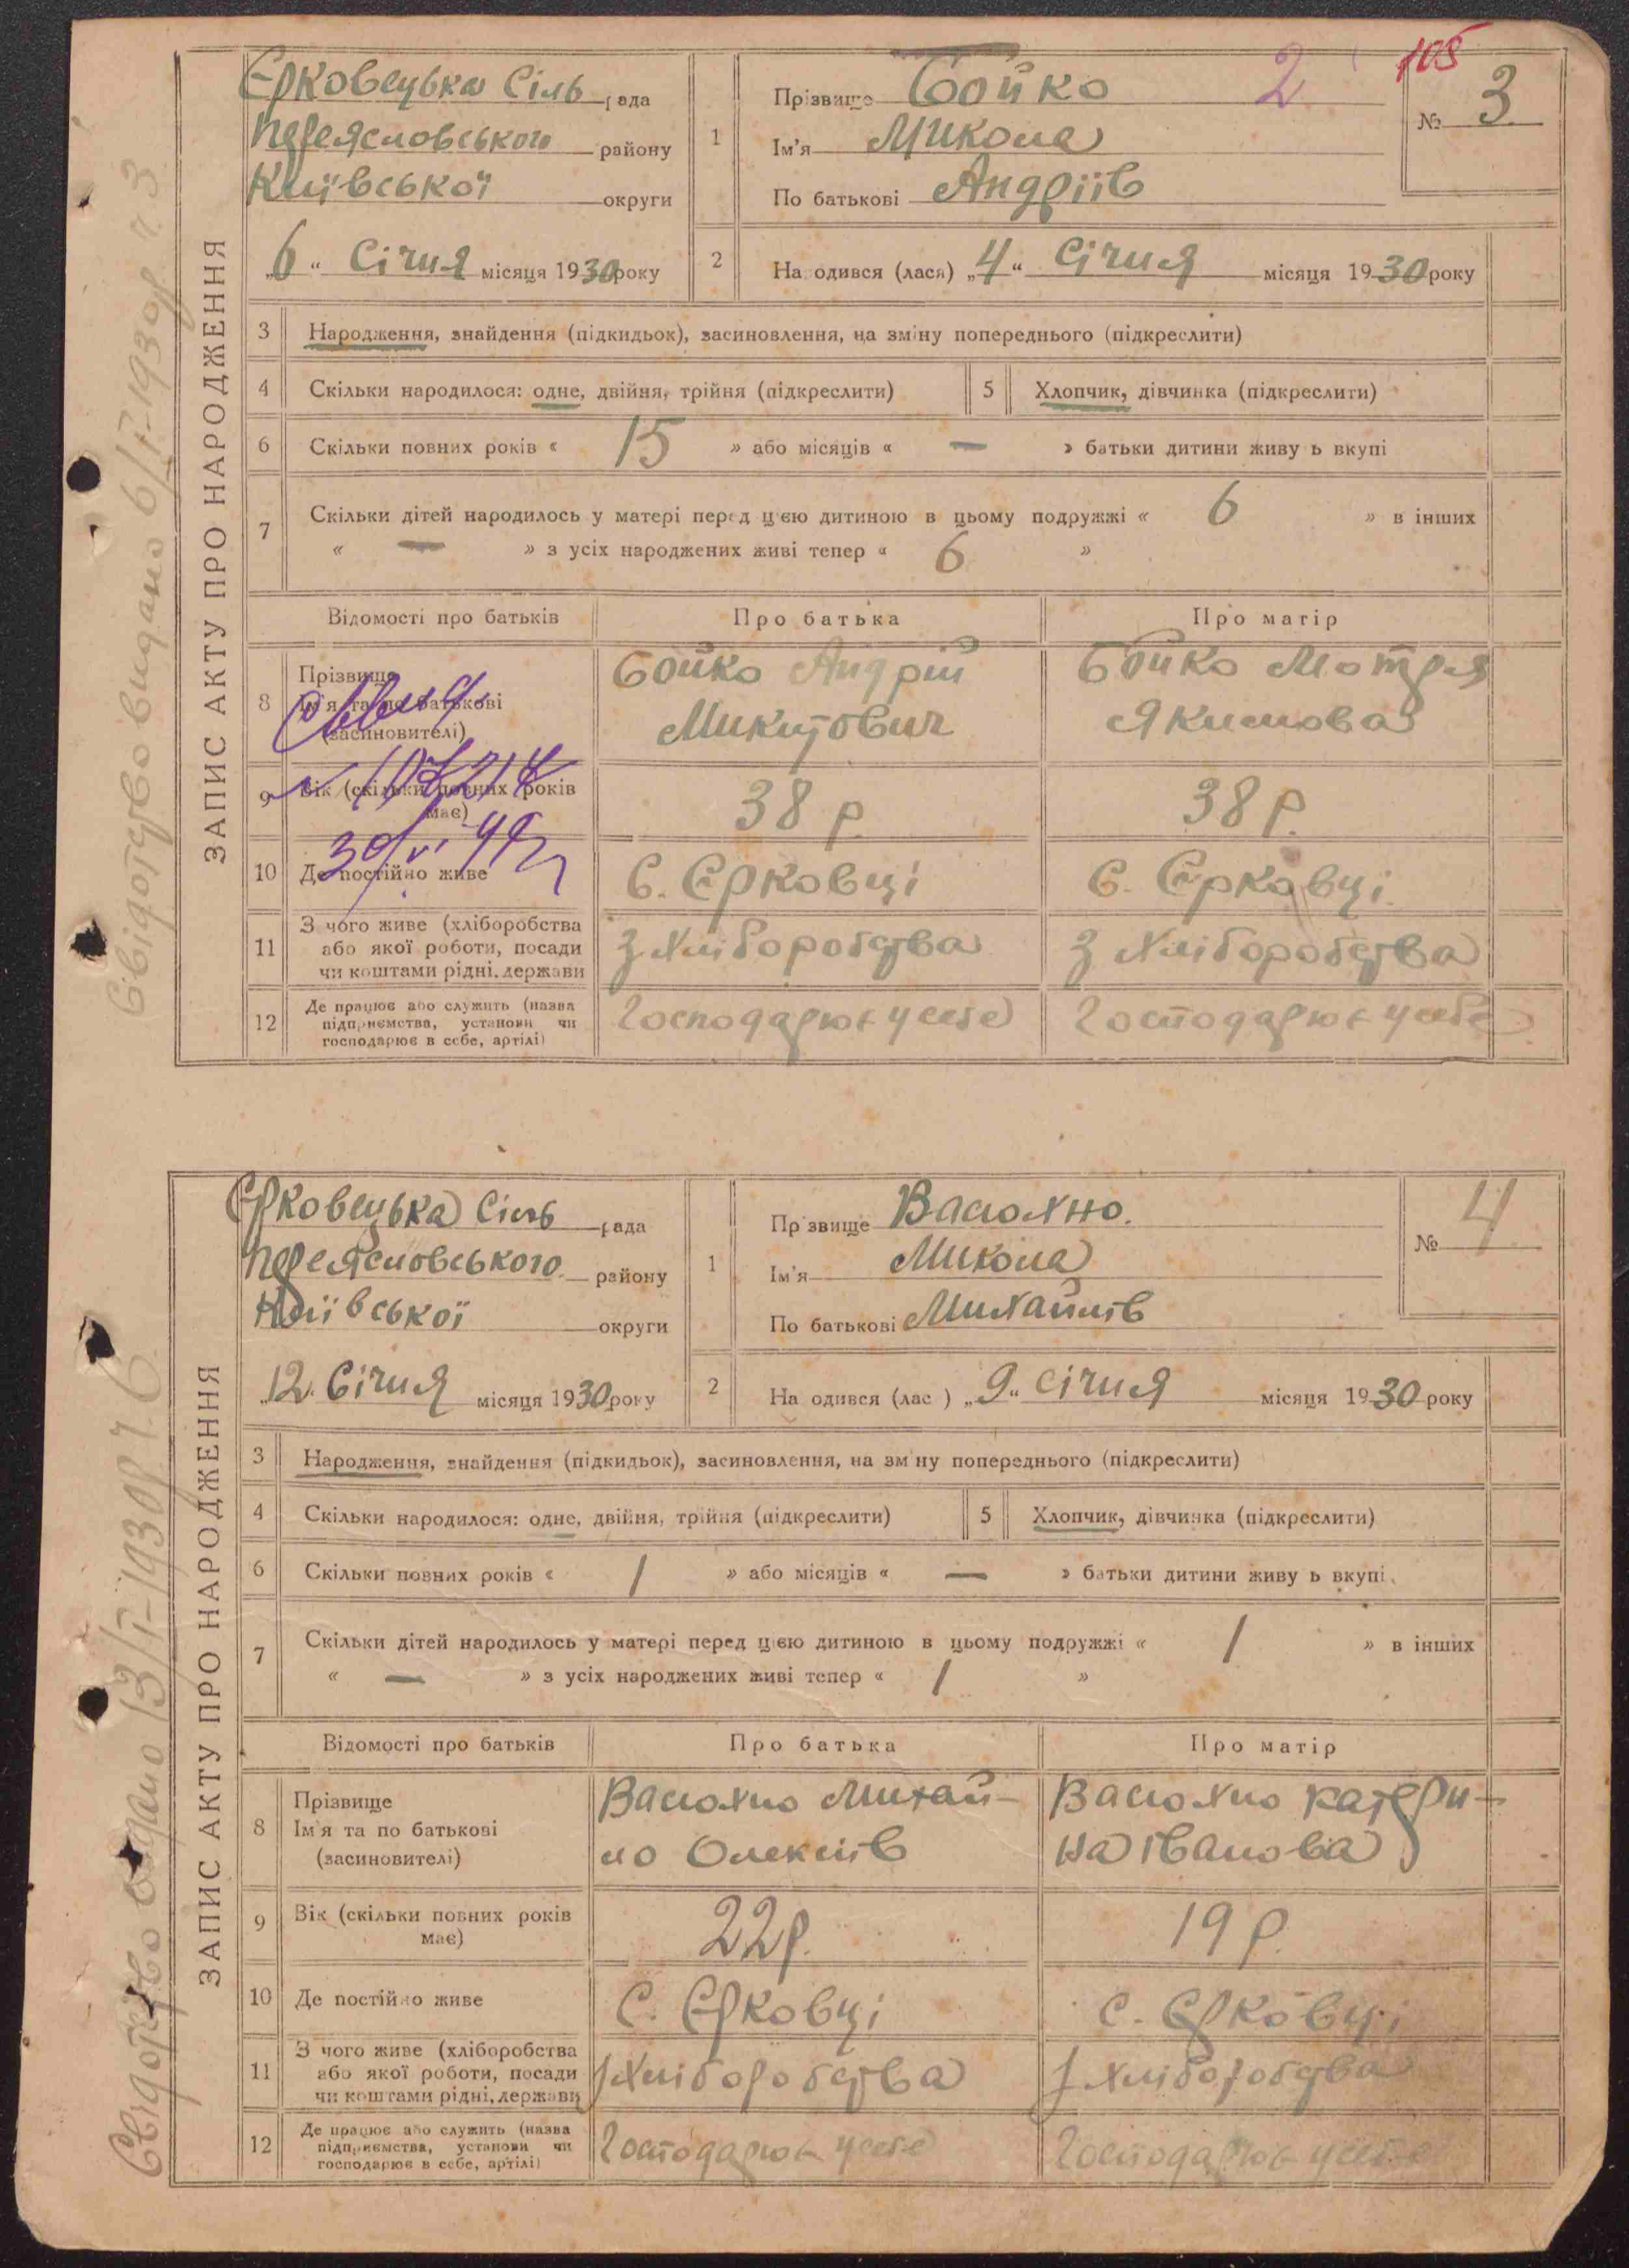 105
2
ЗАПИС АКТУ ПРО НАРОДЖЕННЯ
Свідотство видано 6/I-1930р. ч. 3
Єрковецька Сіль рада
Переясловського району
Київської округи
„6“ Січня місяця 1930 року
1
Прізвище Бойко
Ім'я Микола
По батькові Андріїв
№ 3
2 Народився (лася) „4“ Січня місяця 1930 року
3 Народження, знайдення (підкидьок), засиновлення, на зміну попереднього (підкреслити)
4 Скільки народилося: одне, двійня, трійня (підкреслити) 5 Хлопчик, дівчинка (підкреслити)
6 Скільки повних років « 15 » або місяців « — » батьки дитини живуть вкупі
7 Скільки дітей народилось у матері перед цією дитиною в цьому подружжі « 6 » в інших
« — » з усіх народжених живі тепер « 6 »
Відомості про батьків Про батька Про матір
8 Прізвище
Ім'я та по батькові
(засиновителі)
Бойко Андрій
Микитович
Бойко Мотря
Якимова
9 Вік (скільки повних років
має)
38 р. 38 р.
10 Де постійно живе с. Єрковці с. Єрковці
11 З чого живе (хліборобства
або якої роботи, посади
чи коштами рідні, держави
З хліборобства З хліборобства
12 Де працює або служить (назва
підприємства, установи чи
господарює в себе, артілі)
Господарює у себе Господарює у себе
30/VI 49
ЗАПИС АКТУ ПРО НАРОДЖЕННЯ
Свідотство видано 13/I-1930р. ч. 6
Єрковецька Сіль рада
Переясловського району
Київської округи
„12 Січня місяця 1930 року
1
Прізвище Васюхно.
Ім'я Микола
По батькові Михайлів
№ 4
2 Народився (лася) „9“ січня місяця 1930 року
3 Народження, знайдення (підкидьок), засиновлення, на зміну попереднього (підкреслити)
4 Скільки народилося: одне, двійня, трійня (підкреслити) 5 Хлопчик, дівчинка (підкреслити)
6 Скільки повних років « 1 » або місяців « — » батьки дитини живуть вкупі
7 Скільки дітей народилось у матері перед цією дитиною в цьому подружжі « 1 » в інших
« — » з усіх народжених живі тепер « 1 »
Відомості про батьків Про батька Про матір
8 Прізвище
Ім'я та по батькові
(засиновителі)
Васюхно Михай-
ло Олексіїв
Васюхно Катери-
на Іванова
9 Вік (скільки повних років
має)
22 р. 19 р.
10 Де постійно живе с. Єрковці с. Єрковці
11 З чого живе (хліборобства
або якої роботи, посади
чи коштами рідні, держави
З хліборобства З хліборобства
12 Де працює або служить (назва
підприємства, установи чи
господарює в себе, артілі)
Господарює у себе Господарює у себе